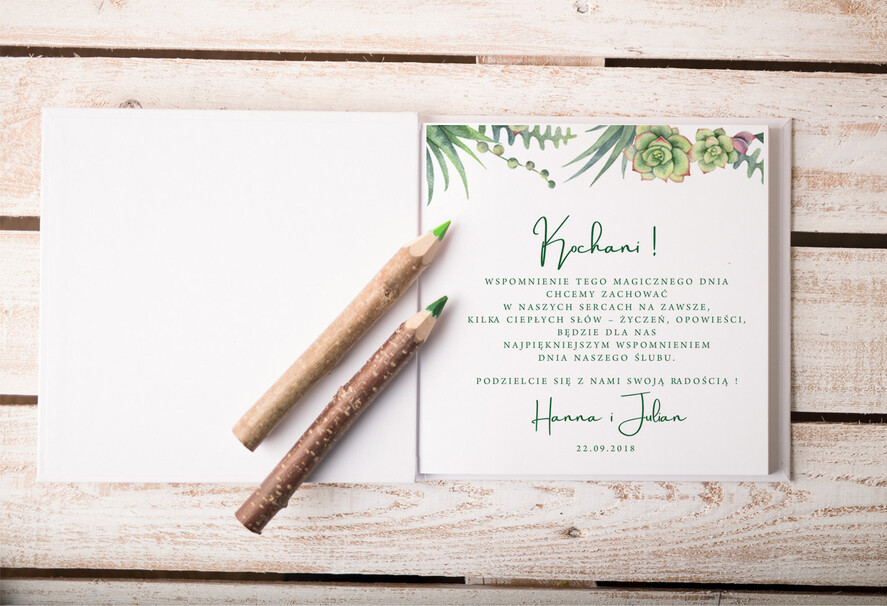 Kochani !
WSPOMNIENIE TEGO MAGICZNEGO DNIA
CHCEMY ZACHOWAĆ
W NASZYCH SERCACH NA ZAWSZE,
KILKA CIEPŁYCH SŁÓW – ŻYCZEŃ, OPOWIEŚCI,
BĘDZIE DLA NAS
NAJPIĘKNIEJSZYM WSPOMNIENIEM
DNIA NASZEGO ŚLUBU.
PODZIELCIE SIĘ Z NAMI SWOJĄ RADOŚCIĄ !
Hanna i Julian
22.09.2018